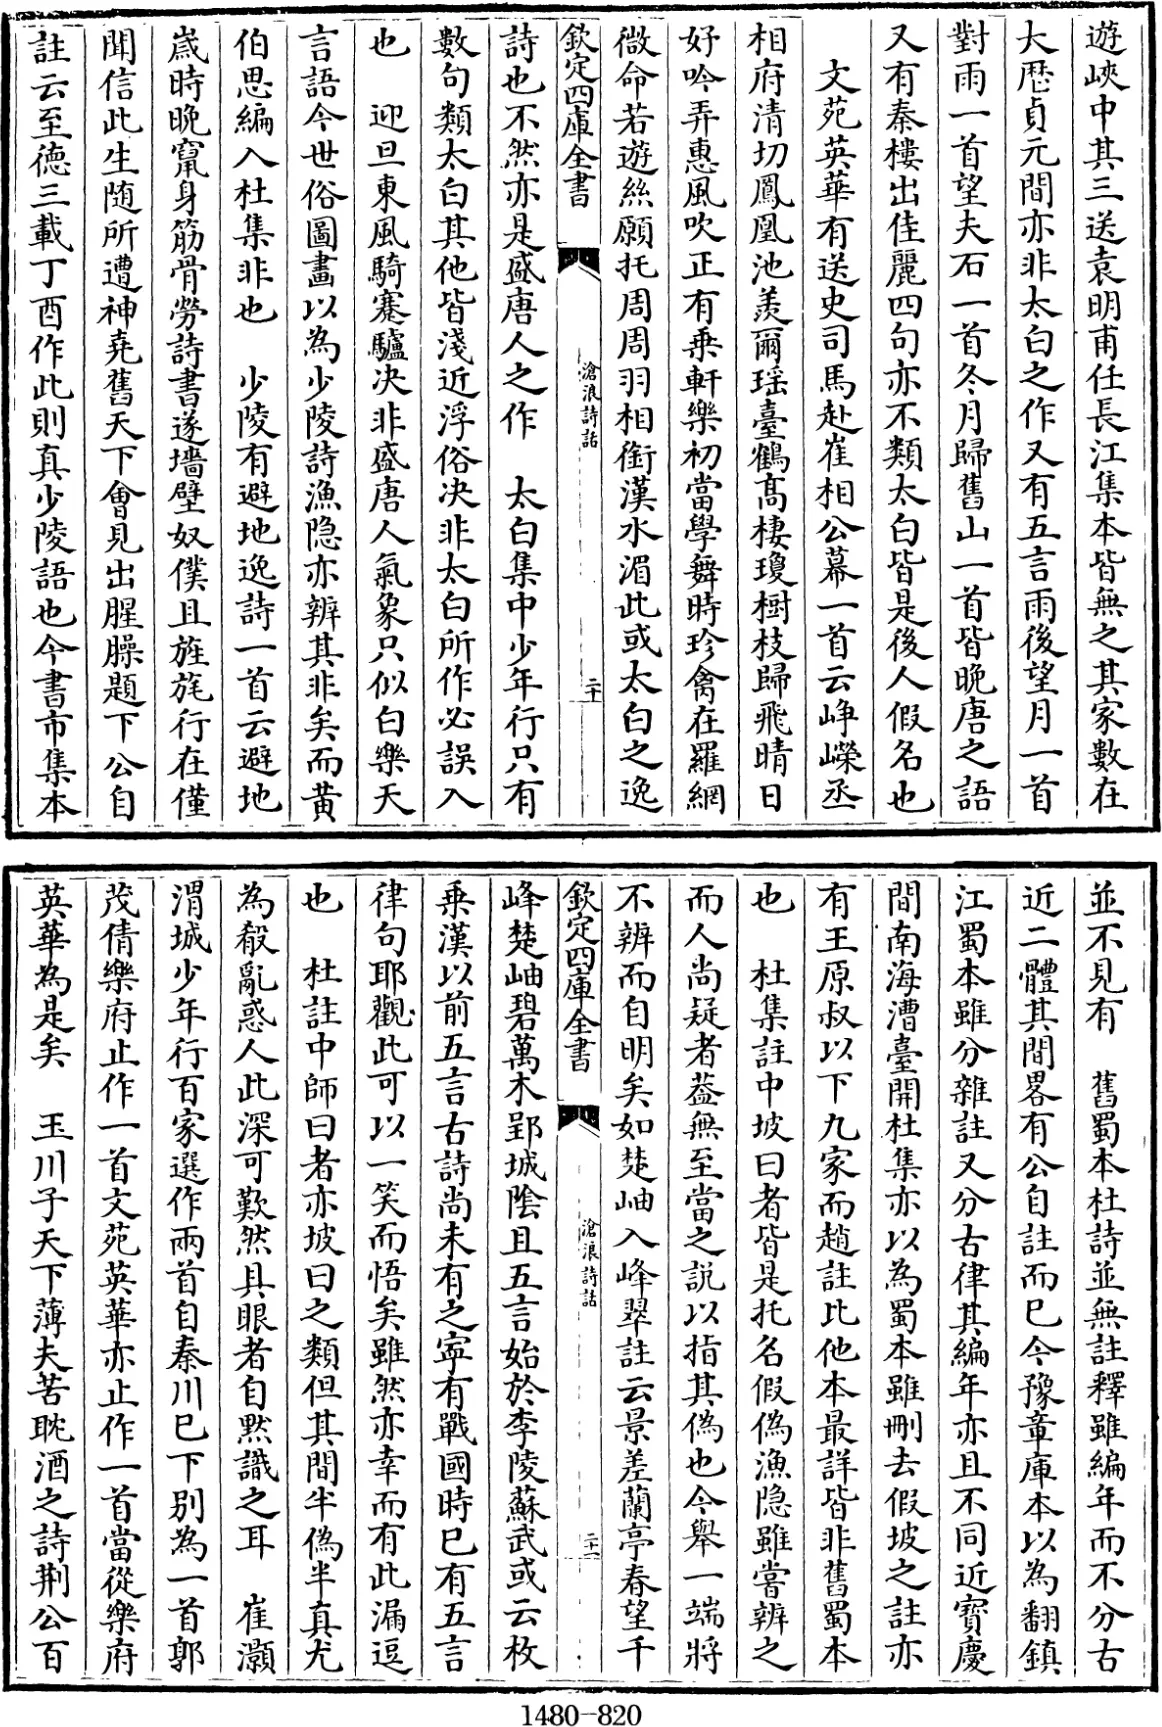 遊峽中其三送袁明甫任長江集本皆無之其家數在
大厯貞元間亦非太白之作又有五言雨後望月一首
對雨一首望夫石一首冬月歸舊山一首皆晩唐之語
又有秦樓出佳麗四句亦不類太白皆是後人假名也
文苑英華有送史司馬赴崔相公幕一首云峥嶸丞
相府清切鳳凰池羨爾瑶臺鶴髙棲瓊樹枝歸飛晴日
好吟弄惠風吹正有乗軒樂初當學舞時珍禽在羅網
微命若遊絲願托周周羽相銜漢水湄此或太白之逸
欽定四庫全書
滄浪詩話
二十
詩也不然亦是盛唐人之作　太白集中少年行只有
數句類太白其他皆淺近浮俗決非太白所作必誤入
也　迎旦東風騎蹇驢决非盛唐人氣象只似白樂天
言語今世俗圖畫以為少陵詩漁隐亦辨其非矣而黄
伯思編入杜集非也　少陵有避地逸詩一首云避地
嵗時晚竄身筋骨勞詩書遂墻壁奴僕且旌旄行在僅
聞信此生随所遭神堯舊天下會見出腥臊題下公自
註云至徳三載丁酉作此則真少陵語也今書市集本
並不見有　舊蜀本杜詩並無註釋雖編年而不分古
近二體其間畧有公自註而已今豫章庫本以為翻鎮
江蜀本雖分雜註又分古律其編年亦且不同近寶慶
間南海漕臺開杜集亦以為蜀本雖删去假坡之註亦
有王原叔以下九家而趙註比他本最詳皆非舊蜀本
也　杜集註中坡曰者皆是托名假偽漁隐雖嘗辨之
而人尚疑者葢無至當之說以指其偽也今舉一端將
不辨而自明矣如楚岫入峰翠註云景差蘭亭春望千
欽定四庫全書
滄浪詩話
二十一
峰楚岫碧萬木郢城陰且五言始於李陵蘇武或云枚
乗漢以前五言古詩尚未有之寜有戰國時已有五言
律句耶觀此可以一笑而悟矣雖然亦幸而有此漏逗
也　杜註中師曰者亦坡曰之類但其間半偽半真尤
為殽亂惑人此深可歎然具眼者自黙識之耳　崔灝
渭城少年行百家選作兩首自秦川已下别為一首郭
茂倩樂府止作一首文苑英華亦止作一首當從樂府
英華為是矣　玉川子天下薄夫苦耽酒之詩荆公百
1480-820